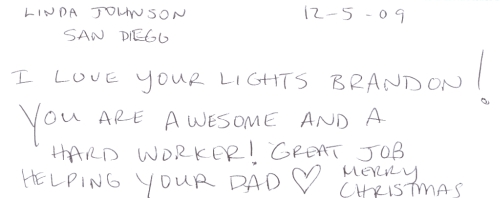 LINDA JOHNSON 12-5-09
SAN DIEGO
I LOVE YOUR LIGHTS BRANDON!
YOU ARE AWESOME AND A
HARD WORKER! GREAT JOB
HELPING YOUR DAD ♡ MERRY
CHRISTMAS